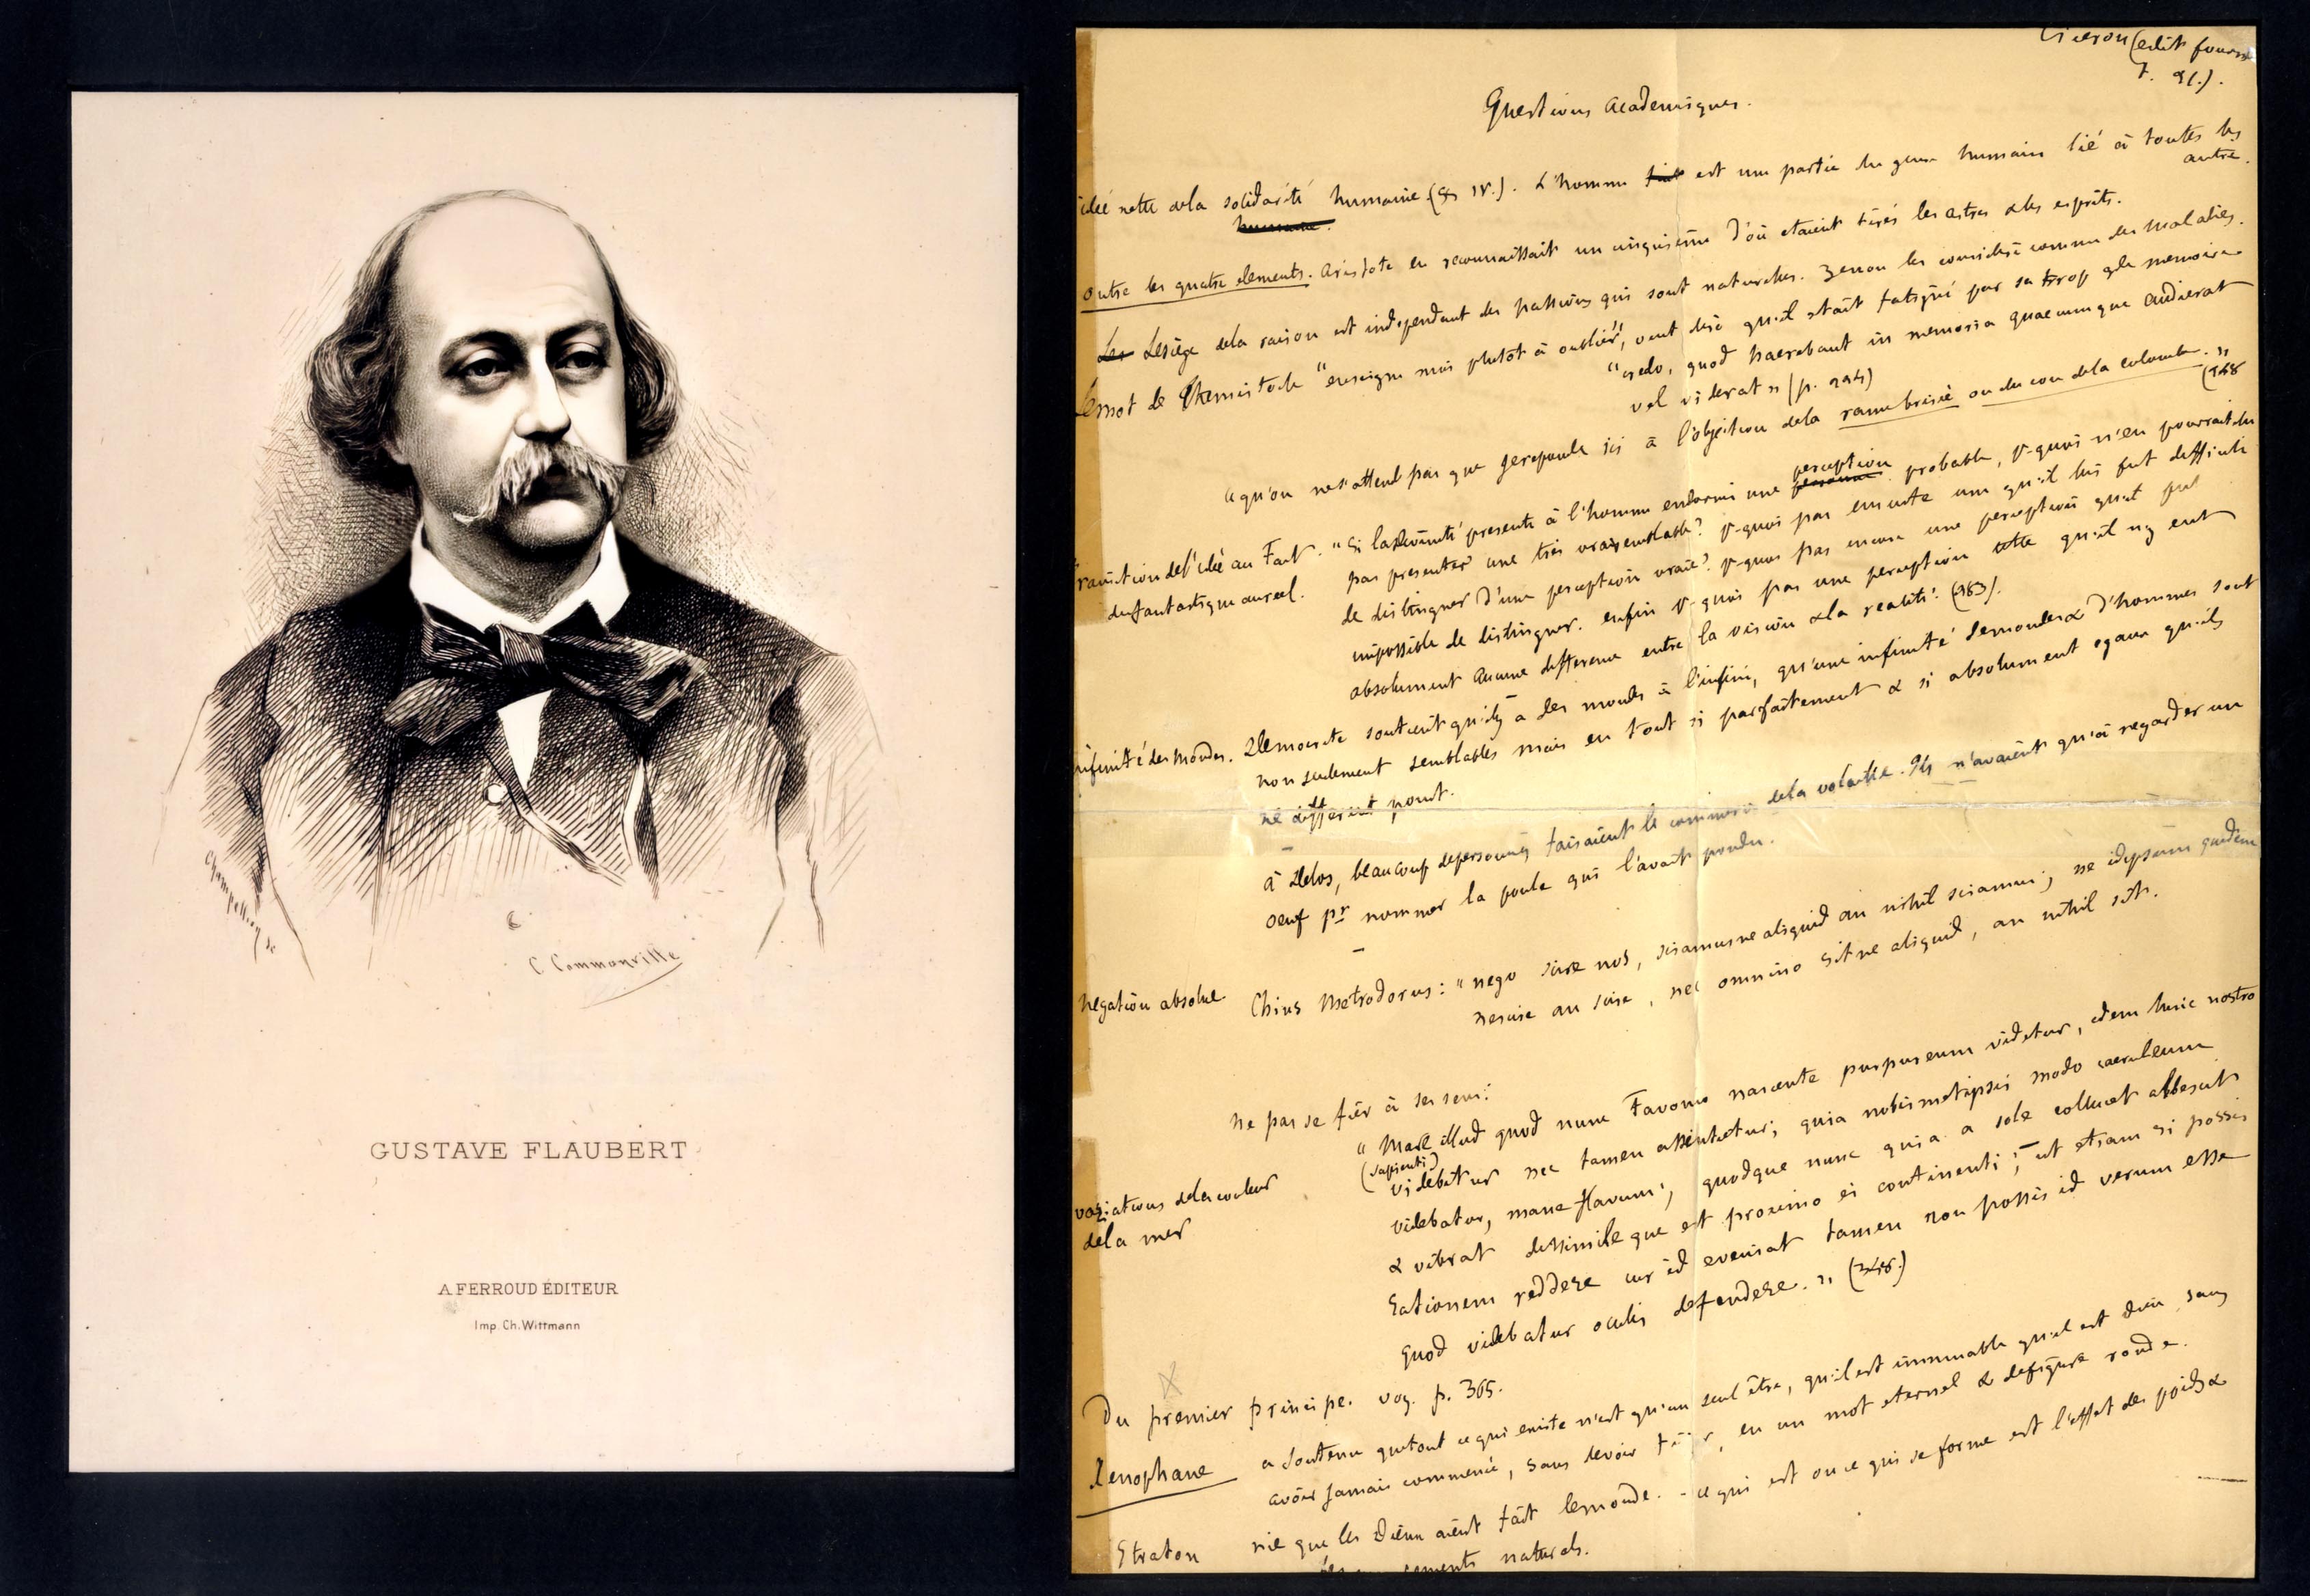 Champollion sc
C Commanville
GUSTAVE FLAUBERT
A FERROUD ÉDITEUR
Imp. Ch. Wittmann
Ciceron (edit fourn
t. 21.).
Questions Academiques.
idée nette dela solidarité humaine (§ IV.). L'homme est une partie du genre humain lié à toutes les
autre.
humaine.
outre les quatre elements. Aristote en reconnaissait un cinquieme d'où etaient tirés les astres & les esprits.
Les Lesiège dela raison est independant des passions qui sont naturelles. Zenon les considère comme des maladies.
Lemot de Themistocle "enseigne moi plutôt à oublier", veut dire qu'il etait fatigué par sa trop gde memoire
"credo, quod haerebant in memoria quaecumque audierat
vel viderat" (p. 224)
"qu'on ne s'attend pas que je reponde ici à l'objection dela rame brisée ou du cou dela colombe."
Transition del'idée au Fait. "Si la divinité presente à l'homme endormi une perception probable, pr-quoi n'en pourrait elle
dufantastique aureel. pas presenter une très vraisemblable? pr-quoi pas ensuite une qu'il lui fut difficile
de distinguer d'une perception vraie? pr-quoi pas encore une perception qu'il fut
impossible de distinguer. enfin pr-quoi pas une perception telle qu'il n'y eut
absolument aucune difference entre la vision & la realité! (263).
infinité des Mondes. Democrite soutient qu'il y a des mondes à l'infini, qu'une infinité de mondes & d'hommes sont
non seulement semblables mais en tout si parfaitement & si absolument egaux qu'ils
ne different point.
à Delos, beaucoup de personnes faisaient le commerce dela volaille. Ils n'avaient qu'à regarder un
oeuf pr nommer la poule qui l'avait pondu.
Negation absolue. Chius Metrodorus: "nego scire nos, sciamusne aliquid an nihil sciamus; ne id ipsum quidem
nescire an scire, nec omnino sitne aliquid, an nihil sit.
ne pas se fier à ses sens:
"Mare illud quod nunc Favonio nascente purpureum videtur, idem huic nostro
(sapienti)
videbitur nec tamen assentietur; quia nobismetipsis modo caeruleum
variations dela couleur videbatur, mane flavum; quodque nunc quia a sole collucet albescit
dela mer & vibrat dissimileque est proximo ei continenti; ut etiam si possis
rationem reddere cur id eveniat tamen non possis id verum esse
quod videbatur oculis defendere."
Du premier principe. voy. p. 365.
Xenophane a soutenu quetout ce qui existe n'est qu'un seul être, qu'il est immuable qu'il est dieu, sans
avoir jamais commencé, sans devoir, en un mot eternel & defigure ronde.
Straton nie que les Dieux aient fait lemonde. - ce qui est ou ce qui se forme est l'effet des poids &
naturels.